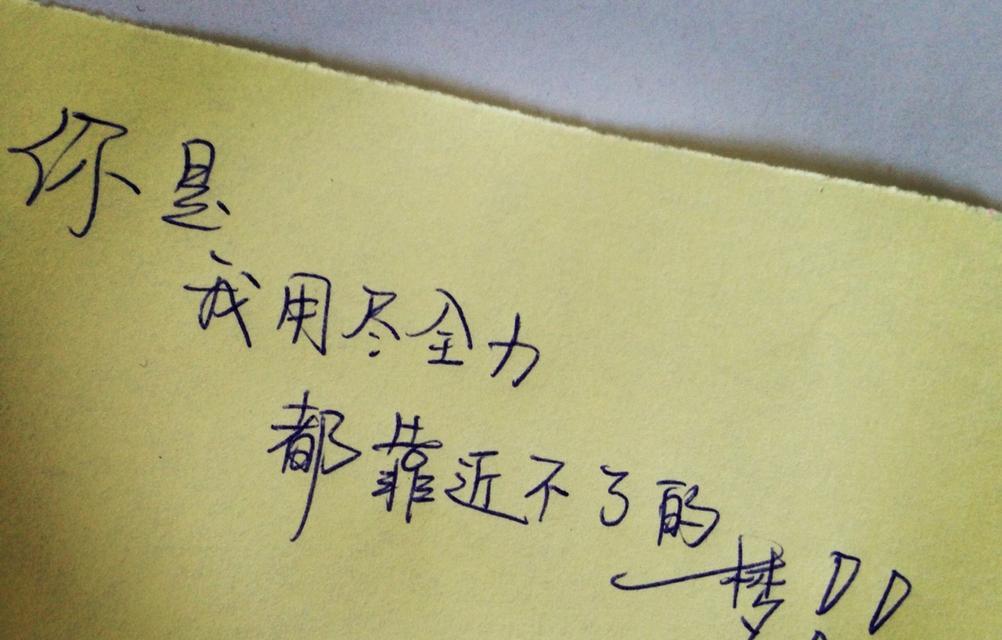 你是
我用尽全力
都靠近不了的
梦!!